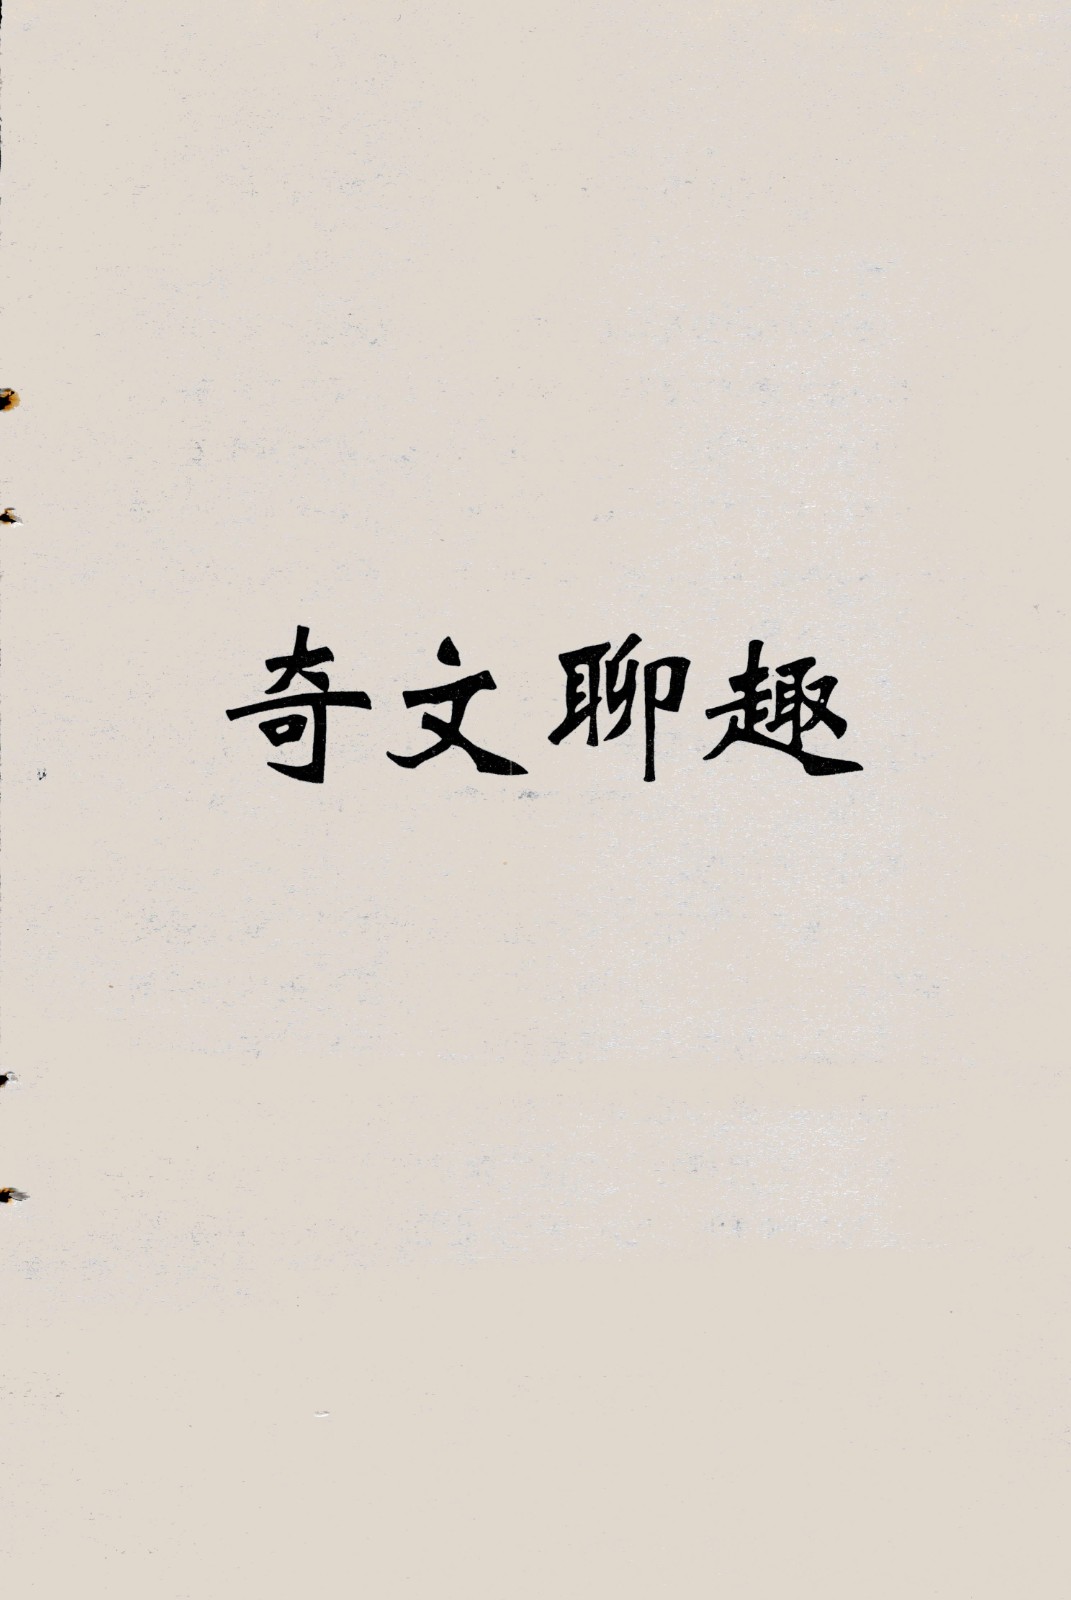 奇文聊趣